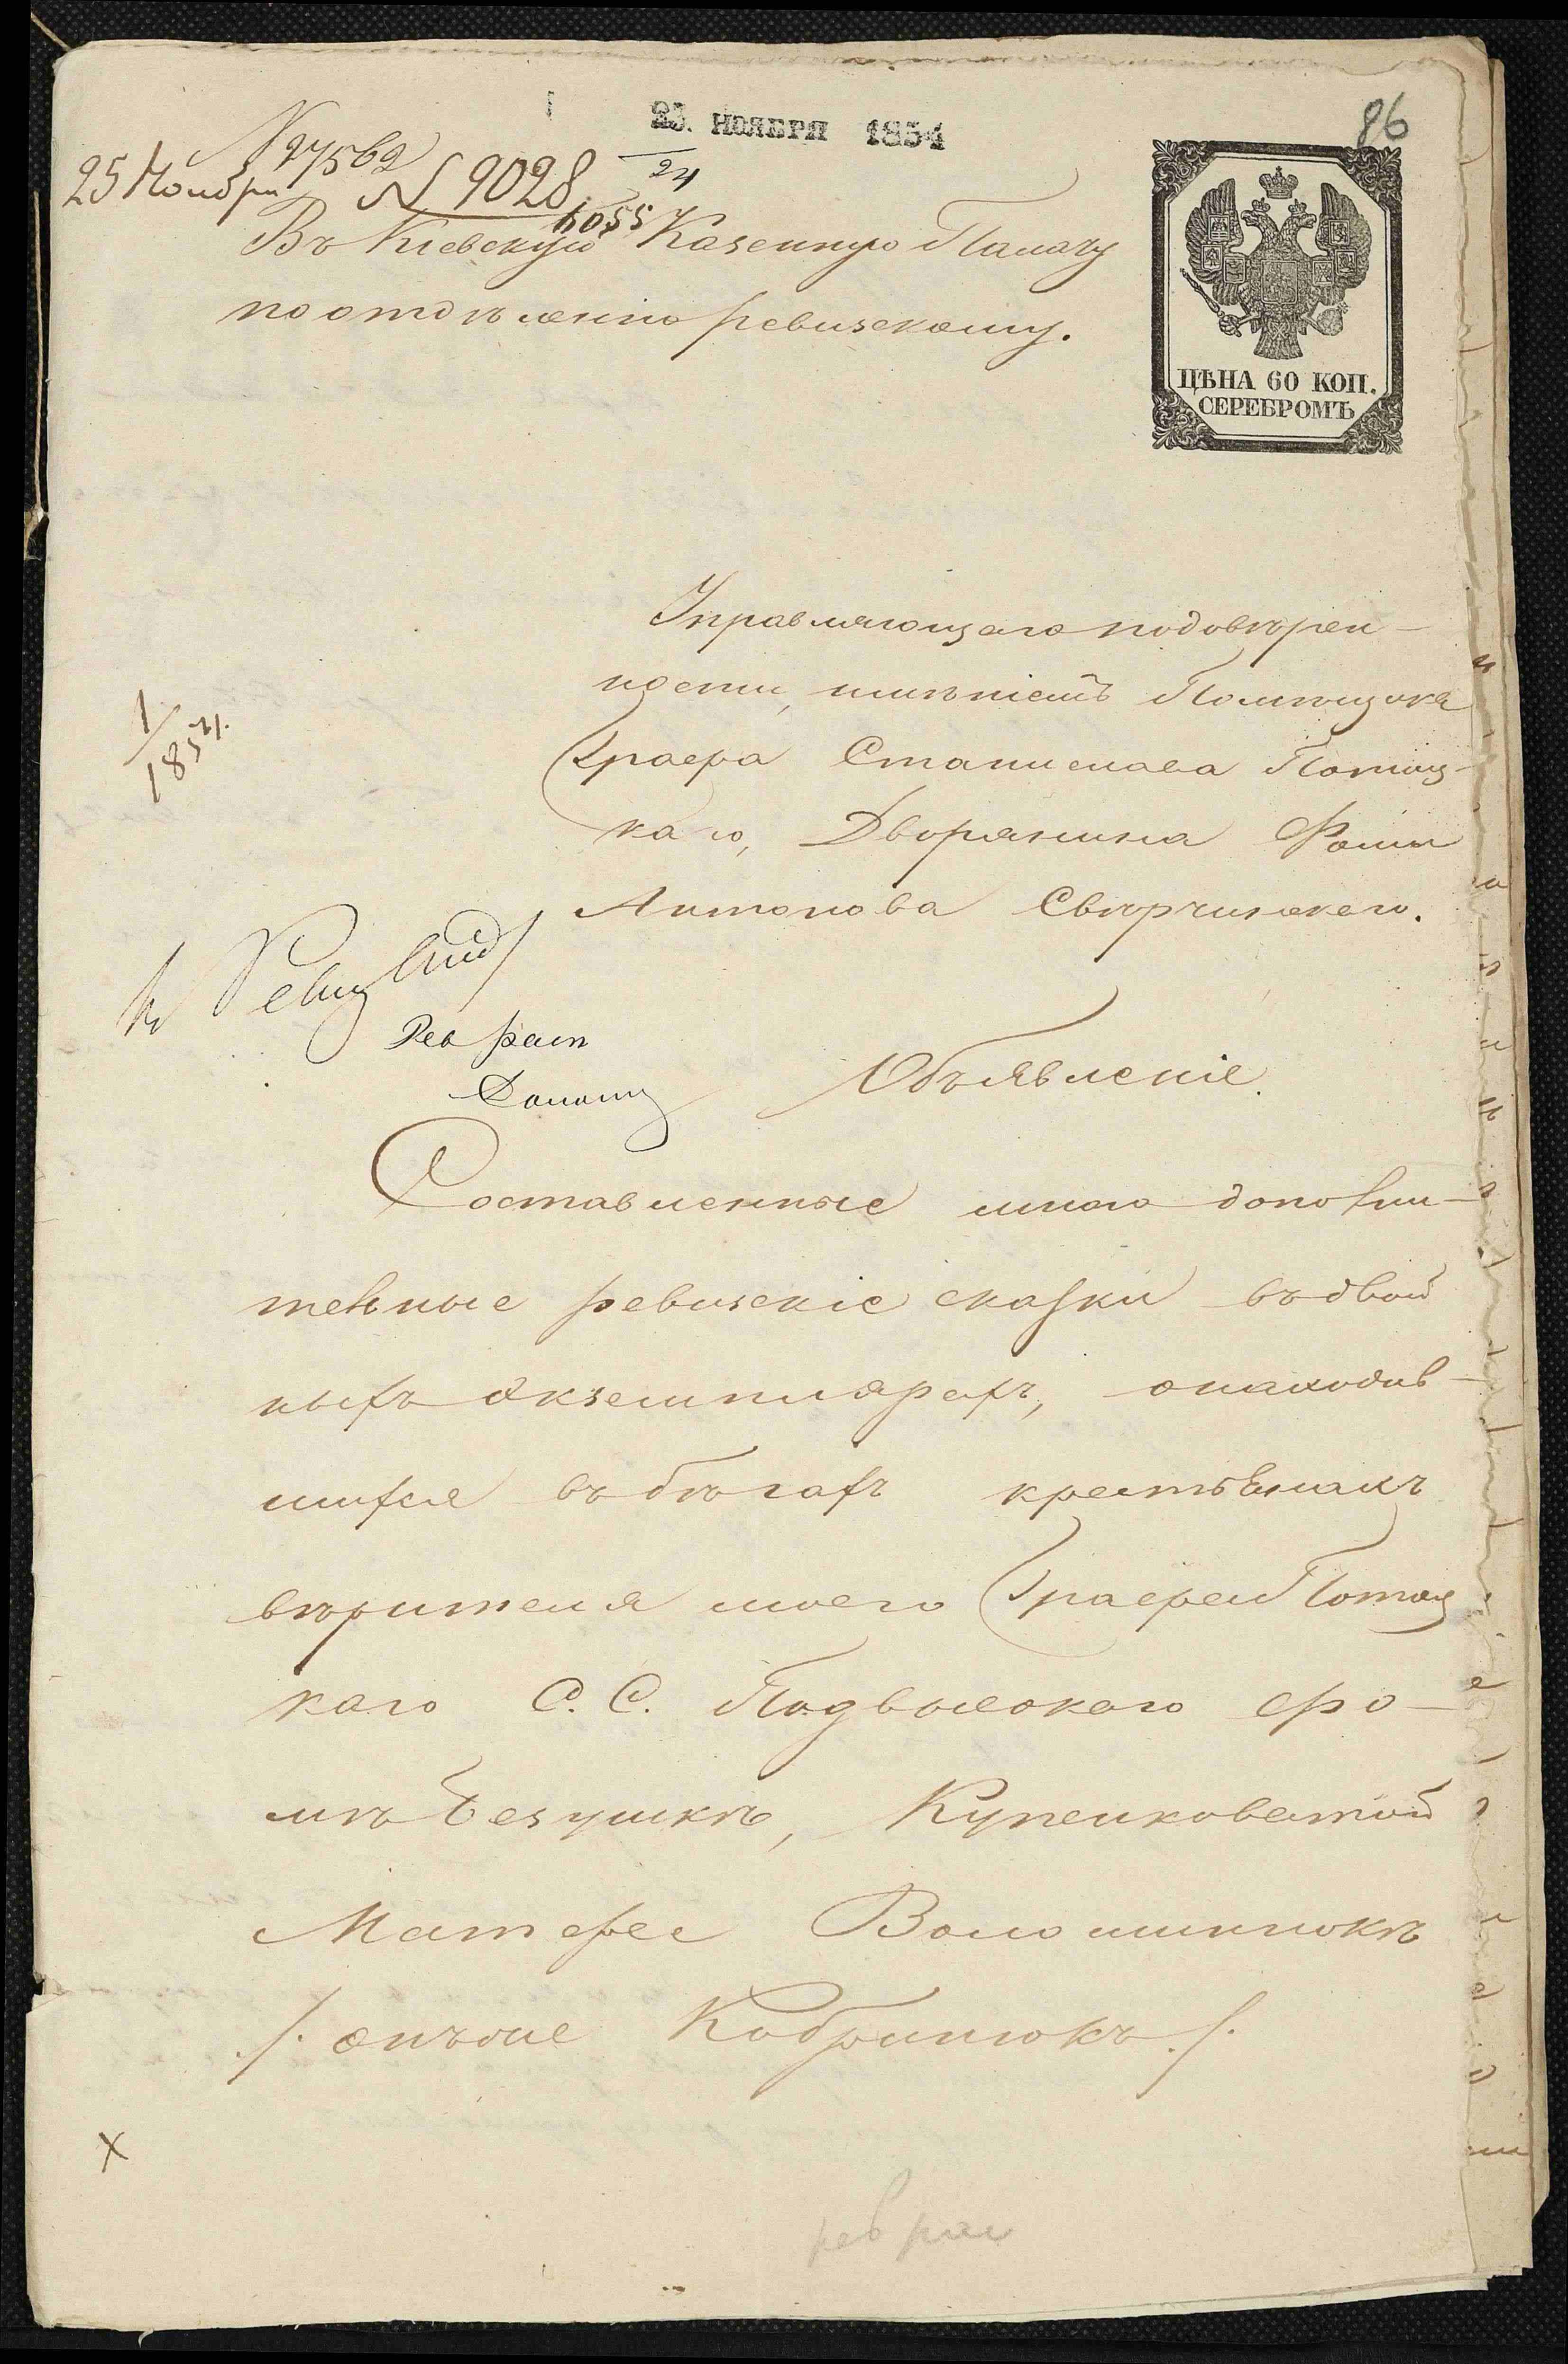 86
23. НОЯБРЯ 1854
24
N 27562
25 Ноября N 9028
6055
Въ Кіевскую Казенную Палату
по отдѣленію ревизскому.
ЦѢНА 60 КОП.
СЕРЕБРОМЪ
Управляющаго по довѣрен-
ности, имѣніемъ Помѣщика
Графа Станислава Потоц-
каго, Дворянина Фомы
Антонова Свѣрчинскаго.
1/1854.
Рев
Объявленіе.
Составленные мною дополни-
тельные ревизскіе сказки въ двой
ныхъ экземплярахъ, о находив-
шихся въ бѣгахъ крестьянахъ
вѣрителя моего Графа Потоц
каго С. С. Подвысокаго Фо-
мѣ Безушкѣ, Купенковатой
Матфее Волошинюкѣ
/. онъ же Кобринюкъ ./.
х
рев